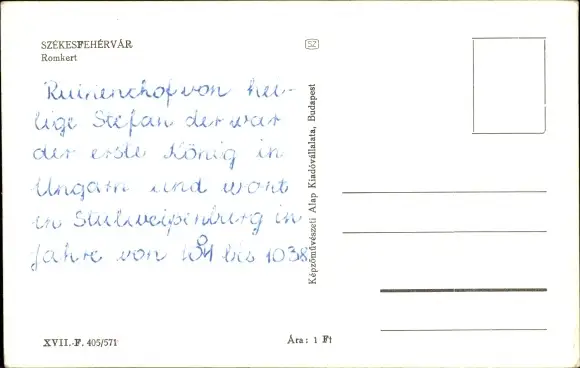 SZÉKESFEHÉRVÁR
Romkert
SZ
Ruinenhof von hei-
lige Stefan der war
der erste König in
Ungarn und wont
in Stulweißenburg in
Jahre von bis 1038
Képzőművészeti Alap Kiadóvállalata, Budapest
XVII.-F. 405/571
Ára: 1 Ft